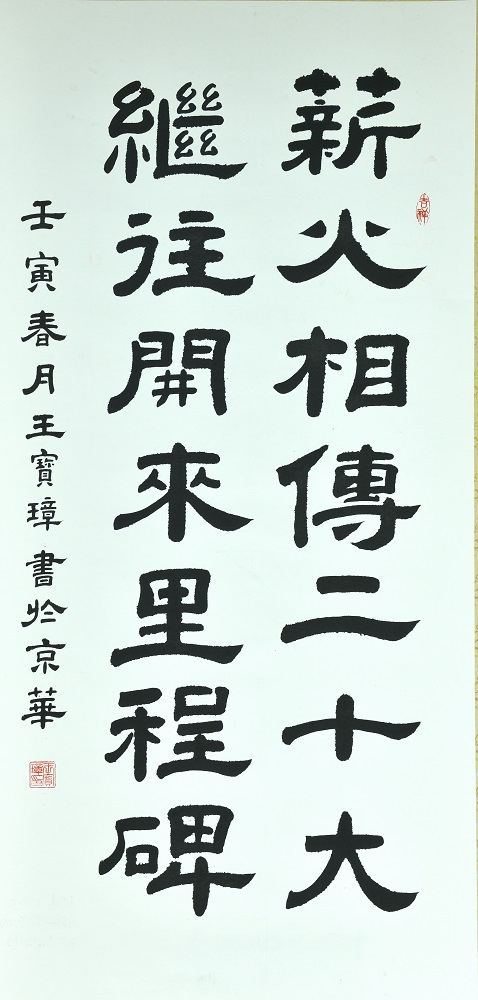 薪火相傳二十大
繼往開來里程碑
壬寅春月王寶璋書於京華
吉祥